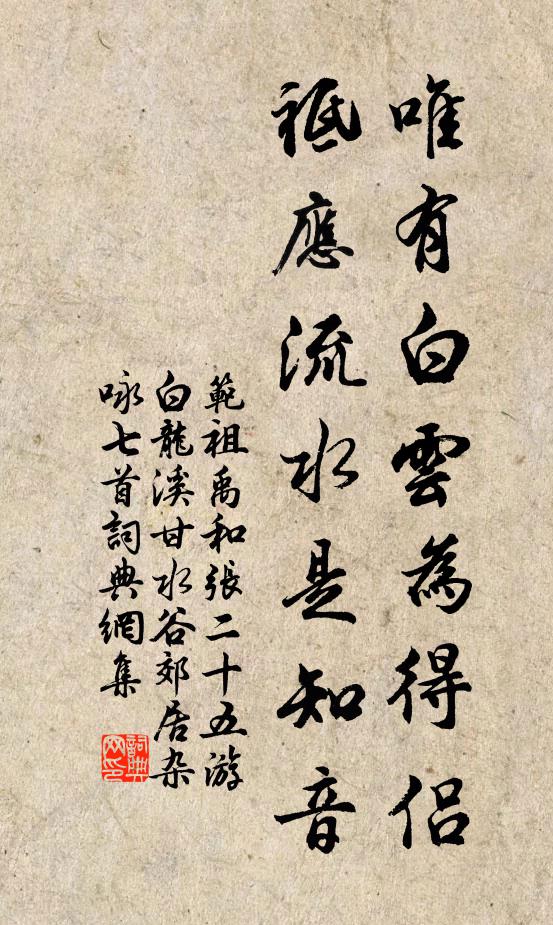 唯有白雲為得侣
祇應流水是知音
範祖禹和張二十五游
白龍溪甘水谷郊居杂
咏七首詞典網集
詞典网印